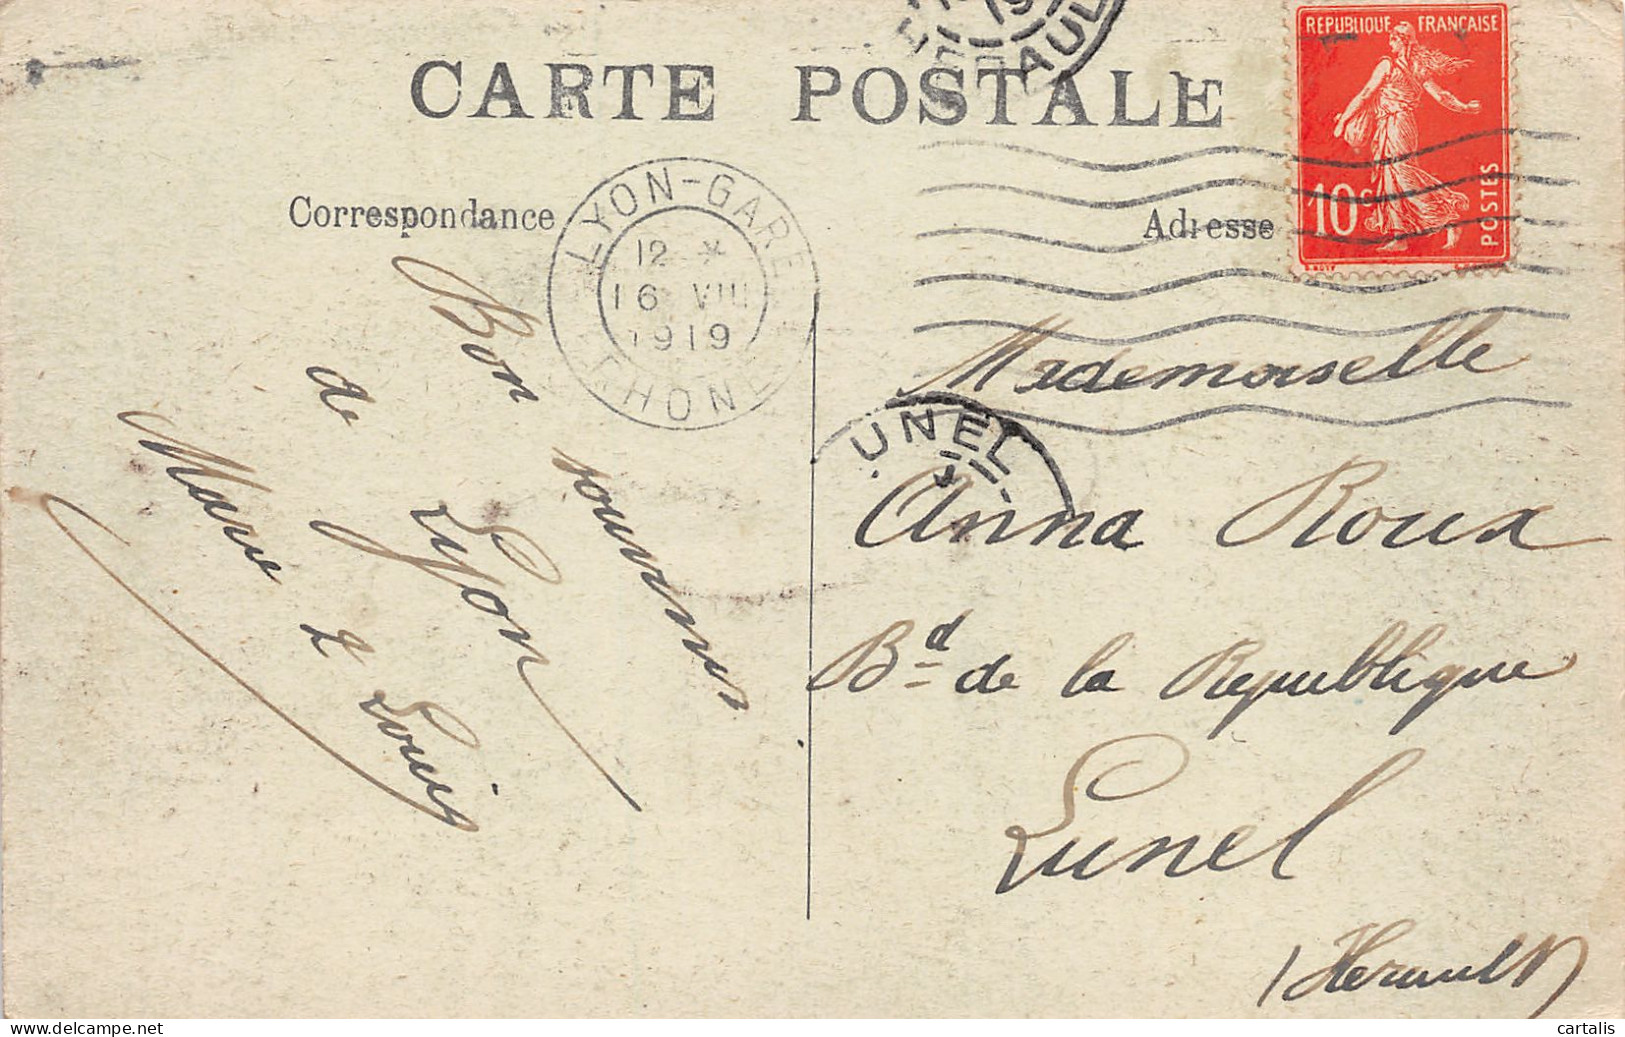 CARTE POSTALE
REPUBLIQUE FRANÇAISE
10c
POSTES
AUL
Correspondance
Adresse
LYON-GARE
12 *
16 VIII
1919
RHONE
UNEL
Bon souvenir
de Lyon
Marie & Louis
Mademoiselle
Anna Roux
Bd de la Republique
Lunel
Herault
cartalis